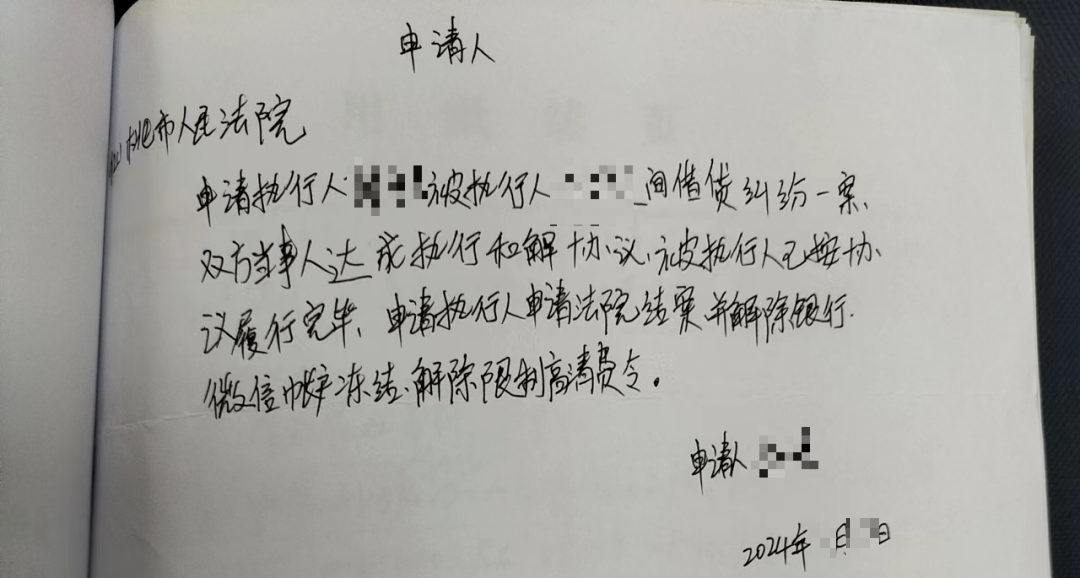 申请人
市人民法院
申请执行人 被执行人 间借贷纠纷一案、
双方当事人达成执行和解协议、被执行人已按协
议履行完毕、申请执行人申请法院结案并解除银行.
微信帐户冻结、解除限制高消费令。
申请人
2024年 月 日